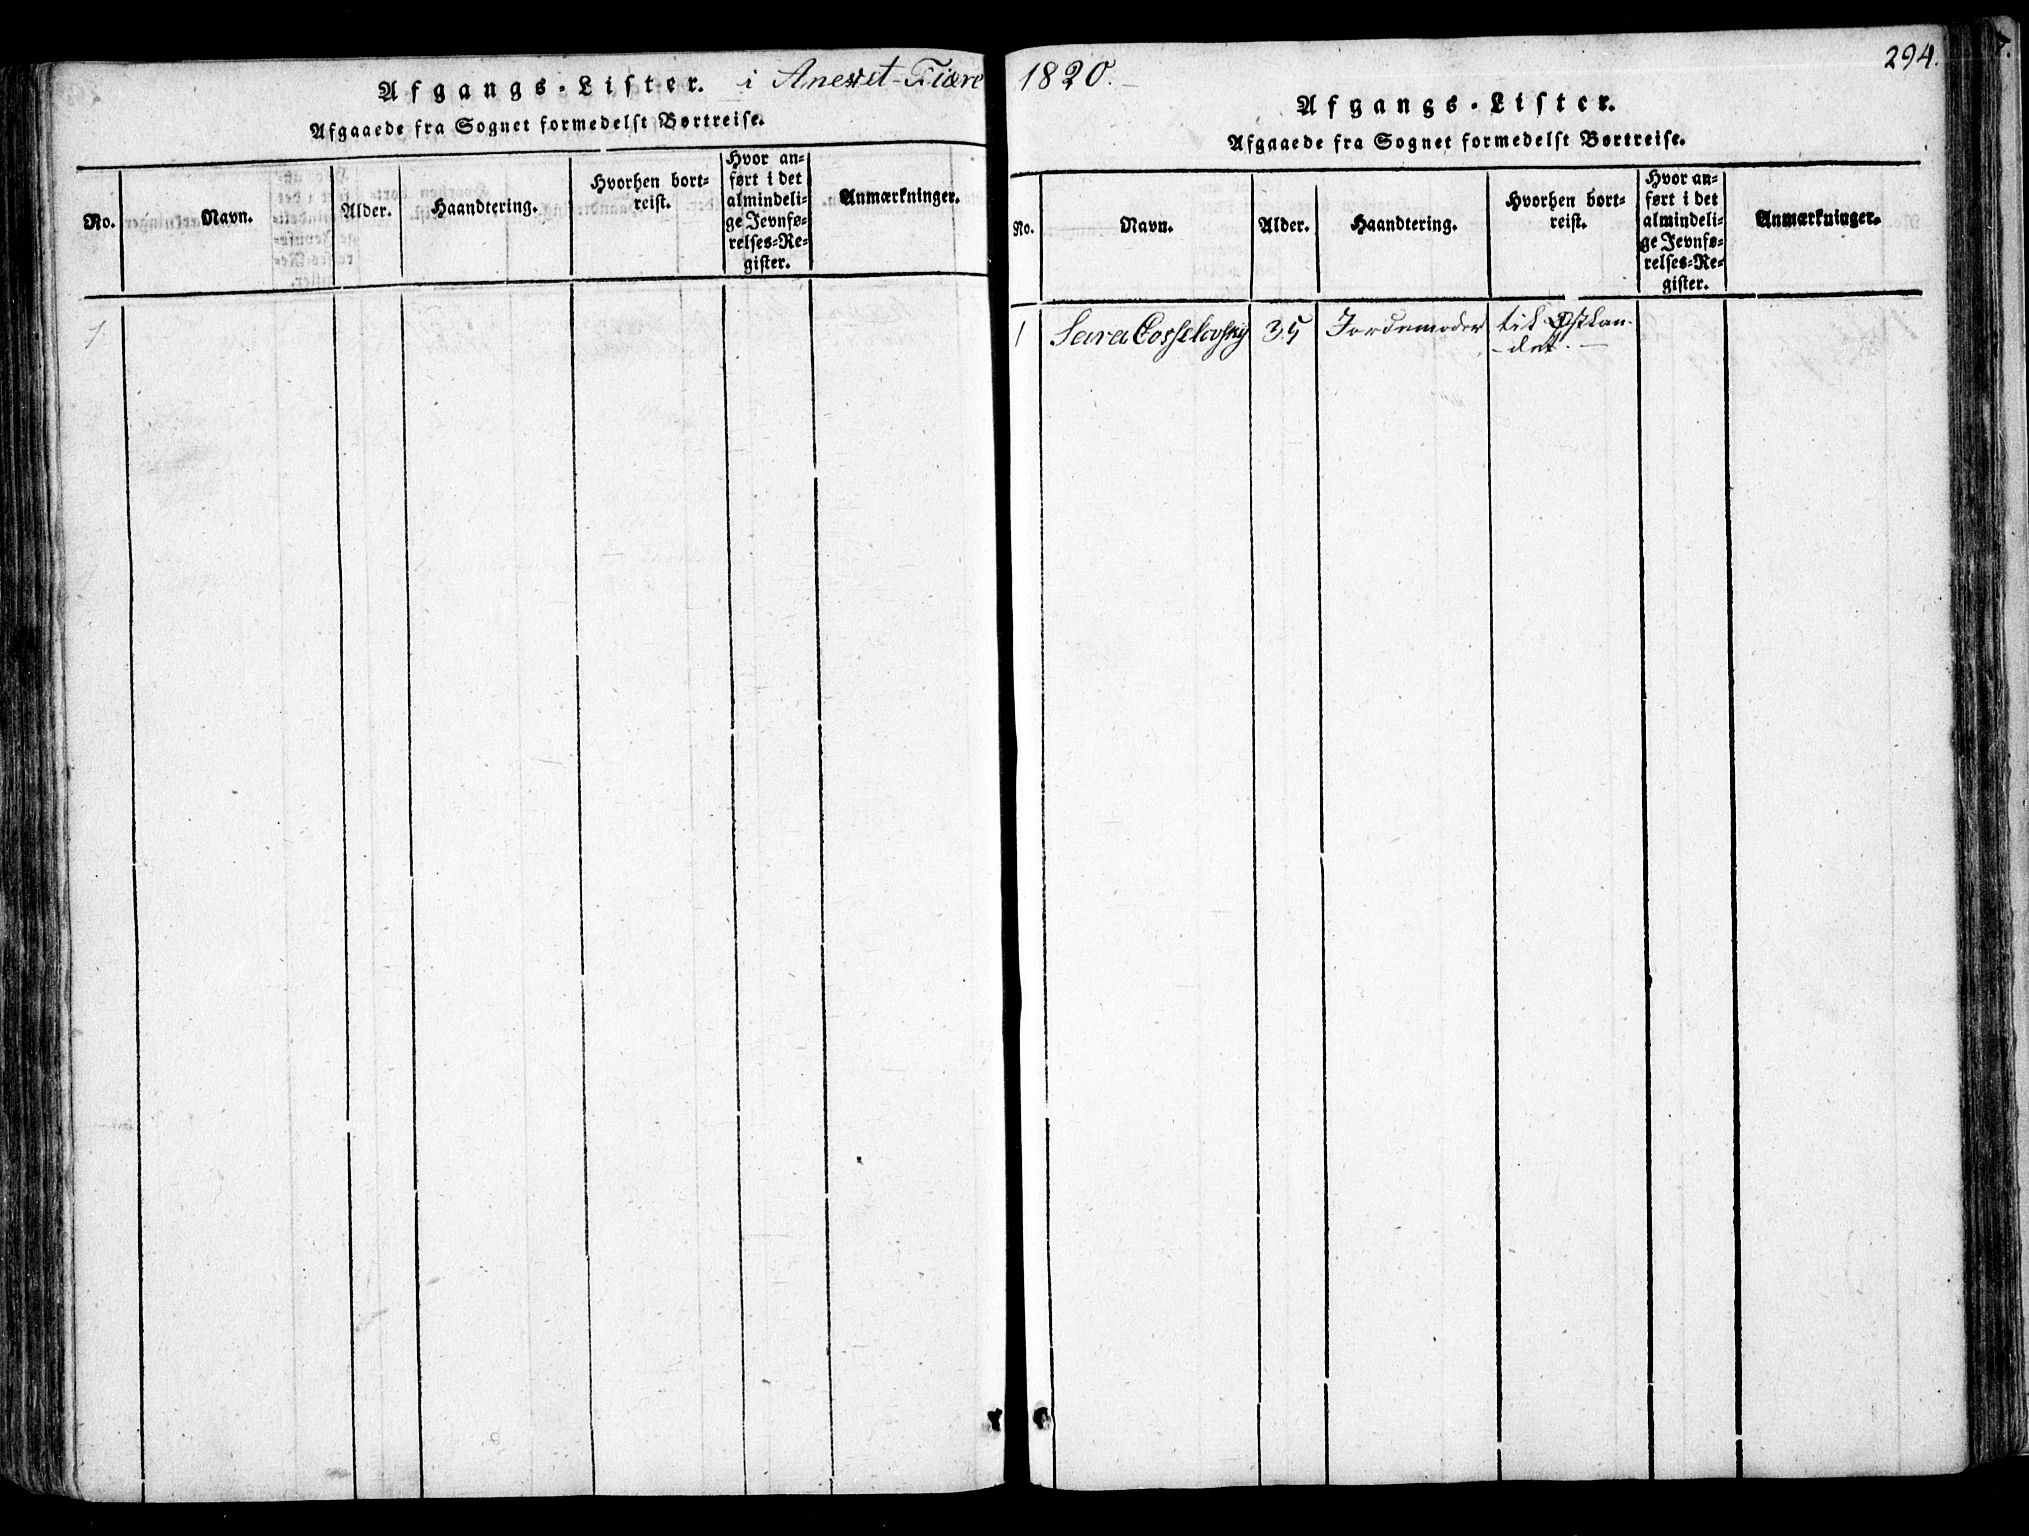 Afgangs-Lister. i Anexet-Fiære
Afgaaede fra Sognet formedelst Bortreise.
No.
Navn.
Alder.
Haandtering.
Hvorhen bort-
reist.
Hvor an-
ført i det
almindeli-
ge Jevnfø-
relses-Re-
gister.
Anmærkninger.
1.
1820.
294.
Afgangs-Lister.
Afgaaede fra Sognet formedelst Bortreise.
No.
Navn.
Alder.
Haandtering.
Hvorhen bort-
reist.
Hvor an-
ført i det
almindeli-
ge Jevnfø-
relses-Re-
gister.
Anmærkninger.
1 Sara 35 Jordemoder til Østlan-
det.